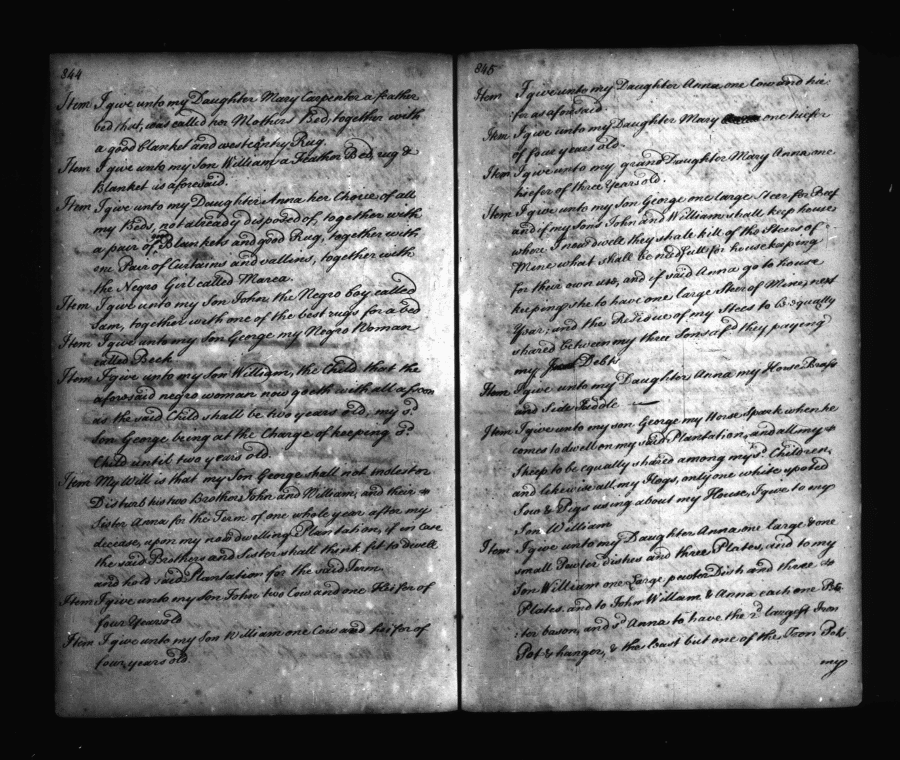 344
Item I give unto my Daughter Mary Carpenter a feather
bed that was called her Mothers Bed, together with
a good Blanket and Rug.
Item I give unto my Son William a Feather Bed, rug &
Blanket as aforesaid.
Item I give unto my Daughter Anna her Choice of all
my Beds, not already disposed of, together with
a pair of good Blankets and good Rug, together with
one Pair of Curtains and vallins, together with
the Negro Girl called Marea
Item I give unto my Son John the Negro boy called
Sam, together with one of the best rugs for a bed
Item I give unto my Son George my Negro Woman
called Beck
Item I give unto my Son William, the Child that the
aforesaid negro woman now goeth with all as soon
as the said Child shall be two years old, my sd
Son George being at the Charge of keeping sd
Child until two years old.
Item My Will is that my Son George shall not molest or
Disturb his two Brothers John and William, and their
Sister Anna for the Term of one whole year after my
decease, upon my now dwelling Plantation, if in case
the said Brothers and Sister shall think fit to dwell
and hold said Plantation for the said Term
Item I give unto my Son John two Cow and one Heifer of
four Years old
Item I give unto my Son William one Cow and heifer of
four years old
345
Item I give unto my Daughter Anna one Cow and hei
fer as aforesaid
Item I give unto my Daughter Mary one hiefer
of four years old.
Item I give unto my grand Daughter Mary Anna one
hiefer of three Years old.
Item I give unto my Son George one large Steer for Beef
and if my Sons John and William shall keep house
where I now dwell they shall kill of the Steers of
Mine what shall be needfull for housekeeping
for their own use, and if said Anna go to house
keeping she to have one large Steer of Mine, next
Year, and the Residue of my Steers to be equally
shared between my three Sons afsd they paying
my Debts
Item I give unto my Daughter Anna my Horse
and Side Saddle
Item I give unto my son George my Horse Spark when he
comes to dwell on my said Plantation, and all my
Sheep to be equally shared among my sd Children,
and likewise all my Hogs, only one white spoted
Sow & Pigs using about my House, I give to my
Son William
Item I give unto my Daughter Anna one large & one
small Pewter Dishes and three Plates, and to my
Son William one Large pewter Dish and three
Plates, and to John William & Anna each one Pew
ter bason, and sd Anna to have the 2d largest Iron
Pot & hanger, & the least but one of the Iron Pots
my